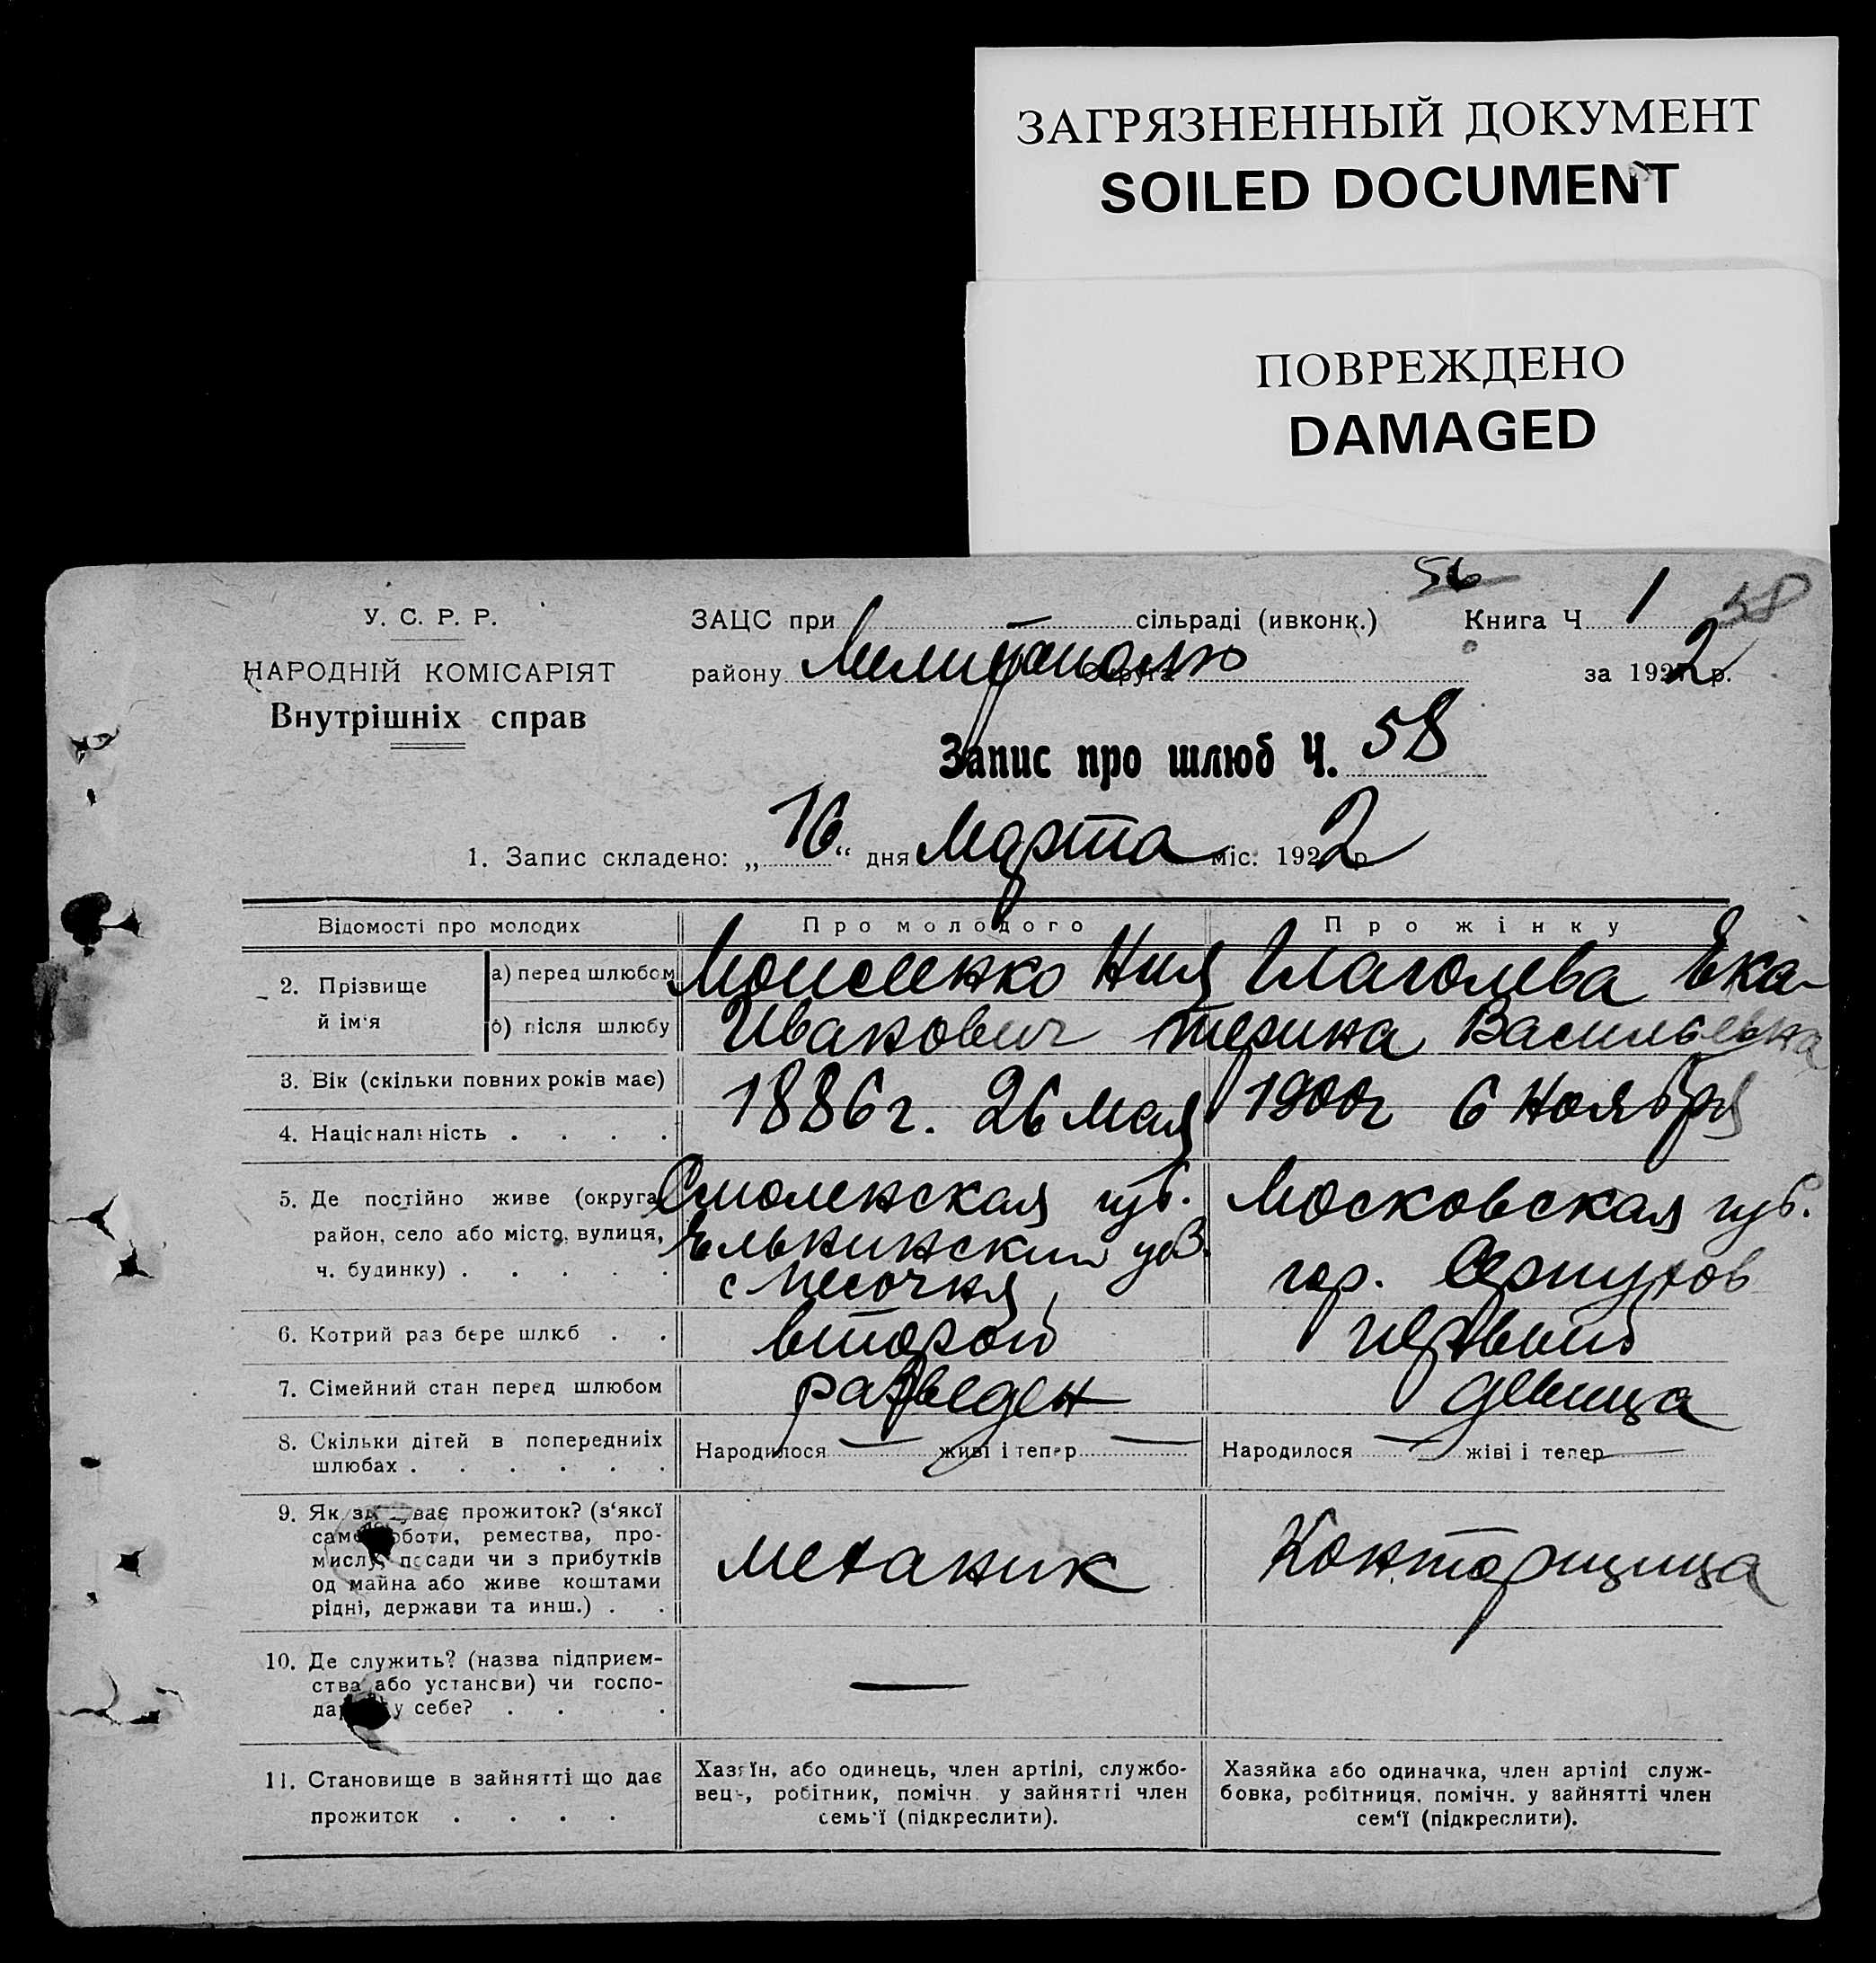 ЗАГРЯЗНЕННЫЙ ДОКУМЕНТ
SOILED DOCUMENT
ПОВРЕЖДЕНО
DAMAGED
56
У. С. Р. Р.
ЗАЦС при — сільраді (ивконк.) Книга Ч. 1 58
НАРОДНІЙ КОМІСАРІЯТ
району Мелитополю округа за 1922 р.
Внутрішніх справ
Запис про шлюб Ч. 58
1. Запис складено: „16“ дня Марта міс. 1922 р
Відомості про молодих Про молодого Про жінку
2. Прізвище й ім'я а) перед шлюбом Моисеенко Глаголева Ека-
б) після шлюбу Иванович терина Васильевна
3. Вік (скільки повних років має) 1886 г. 26 мая 1900 г 6 Ноября
4. Національність . . . .
5. Де постійно живе (округа Смоленская губ. Московская губ.
район, село або місто, вулиця, Ельнинский уез.
ч. будинку) . . . . . с Песочня гор. Серпухов
6. Котрий раз бере шлюб . . второй первый
7. Сімейний стан перед шлюбом разведен девица
8. Скільки дітей в попередніх Народилося — живі і тепер — Народилося — жіві і тепер —
шлюбах . . . . . .
9. Як здо ває прожиток? (з‘якої
само оботи, ремества, про-
мислу, посади чи з прибутків механик Конторщица
од майна або живе коштами
рідні, держави та инш.) . .
10. Де служить? (назва підприєм-
ства або установи) чи госпо- —
да у себе? . . . .
11. Становище в зайнятті що дає Хазяїн, або одинець, член артілі, службо- Хазяйка або одиначка, член артілі служ-
вець, робітник, помічн. у зайнятті член бовка, робітниця, помічн. у зайнятті член
прожиток . . . . семь‘ї (підкреслити). сем‘ї (підкреслити).